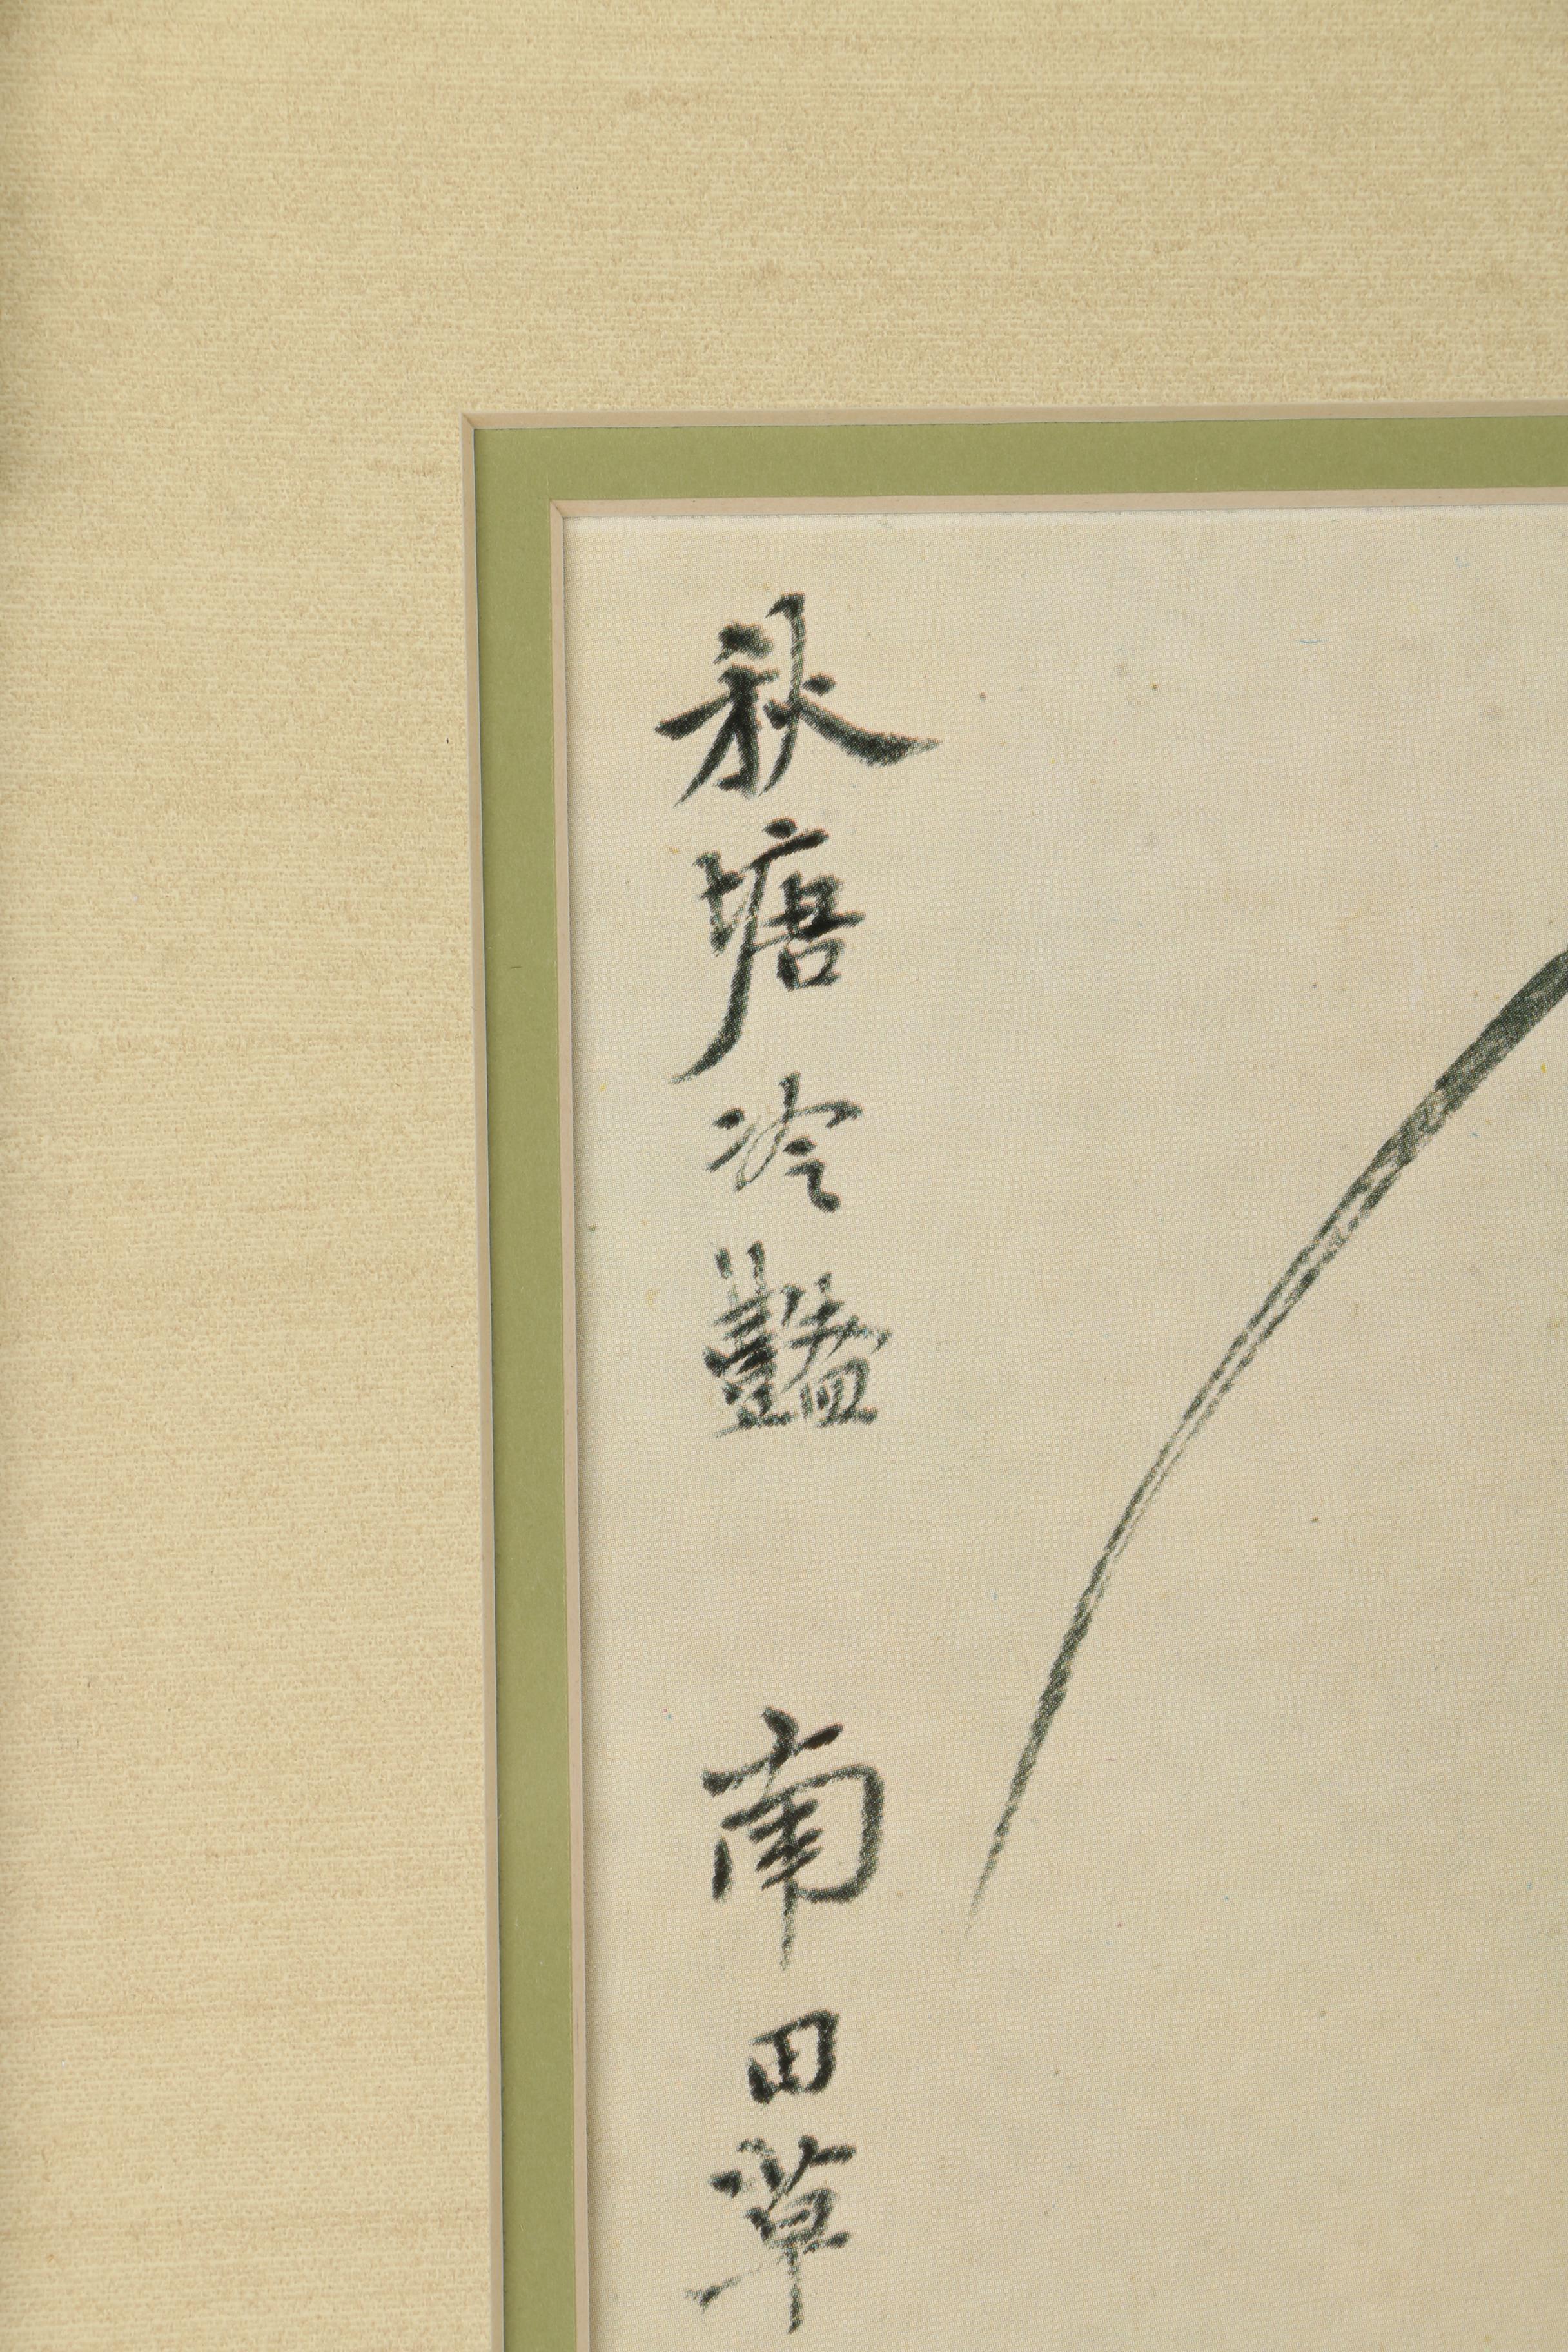 秋塘冷豔
南田草